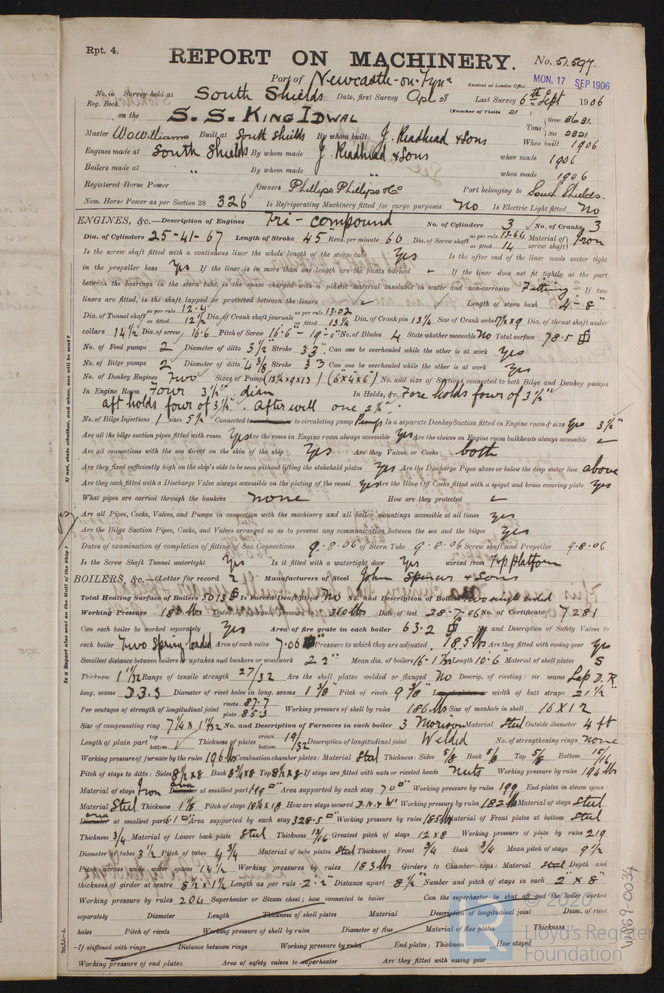 Rpt. 4.
REPORT ON MACHINERY.
No. 51.597
Port of Newcastle-on-Tyne
Received at London Office MON. 17 SEP 1906
No. in Survey held at South Shields Date, first Survey Last Survey 6th Sept 1906
Reg. Book.
(Number of Visits 21)
on the S. S. KING IDWAL
Tons Gross 3631.
Net 2321
Master Wm Williams Built at South Shields By whom built J. Readhead & Sons When built 1906
Engines made at South Shields By whom made J. Readhead & Sons when made 1906
Boilers made at " By whom made " when made 1906
Registered Horse Power Owners Phillips Phillips & Co Port belonging to South Shields.
Nom. Horse Power as per Section 28 326 Is Refrigerating Machinery fitted for cargo purposes No Is Electric Light fitted No
ENGINES, &c.—Description of Engines Tri-compound No. of Cylinders 3 No. of Cranks 3
Dia. of Cylinders 25-41-67 Length of Stroke 45" Revs. per minute 60 Dia. of Screw shaft as per rule 13.64 as fitted 14 Material of screw shaft Iron
Is the screw shaft fitted with a continuous liner the whole length of the stern tube Yes Is the after end of the liner made water tight
in the propeller boss Yes If the liner is in more than one length are the joints burned If the liner does not fit tightly at the part
between the bearings in the stern tube, is the space charged with a plastic material insoluble in water and non-corrosive Fitting If two
liners are fitted, is the shaft lapped or protected between the liners Length of stern bush 4-8"
Dia. of Tunnel shaft as per rule 12.4 as fitted 12½ Dia. of Crank shaft journals as per rule 13.02 as fitted 13¼ Dia. of Crank pin 13¼ Size of Crank webs Dia. of thrust shaft under
collars 14½ Dia. of screw 16.6 Pitch of Screw 16.6-19-0" No. of Blades 4 State whether moveable No Total surface 78.5
No. of Feed pumps 2 Diameter of ditto 3½" Stroke 33 Can one be overhauled while the other is at work Yes
No. of Bilge pumps 2 Diameter of ditto 4⅜ Stroke 33 Can one be overhauled while the other is at work Yes
No. of Donkey Engines Two Sizes of Pumps No. and size of Suctions connected to both Bilge and Donkey pumps
In Engine Room Four 3½" diam In Holds, &c. Fore holds four of 3½"
aft holds four of 3½". After well one 2½".
No. of Bilge Injections 1 sizes Connected to circulating pump Pumps Is a separate Donkey Suction fitted in Engine room & size Yes 3½"
Are all the bilge suction pipes fitted with roses Yes Are the roses in Engine room always accessible Yes Are the sluices on Engine room bulkheads always accessible
Are all connections with the sea direct on the skin of the ship Yes Are they Valves or Cocks both
Are they fixed sufficiently high on the ship's side to be seen without lifting the stokehold plates Yes Are the Discharge Pipes above or below the deep water line above
Are they each fitted with a Discharge Valve always accessible on the plating of the vessel Yes Are the Blow Off Cocks fitted with a spigot and brass covering plate Yes
What pipes are carried through the bunkers none How are they protected
Are all Pipes, Cocks, Valves, and Pumps in connection with the machinery and all boiler mountings accessible at all times yes
Are the Bilge Suction Pipes, Cocks, and Valves arranged so as to prevent any communication between the sea and the bilges yes
Dates of examination of completion of fitting of Sea Connections 9.8.06 of Stern Tube 9.8.06 Screw shaft and Propeller 9.8.06
Is the Screw Shaft Tunnel watertight Yes Is it fitted with a watertight door Yes worked from Top platform
BOILERS, &c.—(Letter for record 2 Manufacturers of Steel John Spencer & Sons
Total Heating Surface of Boilers Is Forced Draft fitted No No. and Description of Boilers Two single ended
Working Pressure 180 lbs Tested by hydraulic pressure to 360 lbs Date of test 28-7-06 No. of Certificate 7281
Can each boiler be worked separately Yes Area of fire grate in each boiler 63.2 No. and Description of Safety Valves to
each boiler Two Spring loaded Area of each valve 7.06 Pressure to which they are adjusted 185 lbs Are they fitted with easing gear Yes
Smallest distance between boilers or uptakes and bunkers or woodwork 22" Mean dia. of boilers Length 10-6 Material of shell plates S
Thickness Range of tensile strength 27/32 Are the shell plates welded or flanged No Descrip. of riveting: cir. seams Lap D.R
long. seams D.B.S Diameter of rivet holes in long. seams 1⅜ Pitch of rivets 9⅞" width of butt straps 21½"
Per centages of strength of longitudinal joint rivets 87.7 plate 85.3 Working pressure of shell by rules 186 lbs Size of manhole in shell 16 x 12
Size of compensating ring No. and Description of Furnaces in each boiler 3 Morison Material Steel Outside diameter 4 ft
Length of plain part top bottom Thickness of plates crown bottom 19/32 Description of longitudinal joint Welded No. of strengthening rings none
Working pressure of furnace by the rules 196 lbs Combustion chamber plates: Material Steel Thickness: Sides ⅝ Back ⅝ Top ⅝ Bottom
Pitch of stays to ditto: Sides Back Top If stays are fitted with nuts or riveted heads nuts Working pressure by rules 194 lbs
Material of stays Iron at smallest part Area supported by each stay 70 Working pressure by rules 199 End plates in steam space:
Material Steel Thickness 1⅛ Pitch of stays How are stays secured D.N.&W. Working pressure by rules 182 lbs Material of stays Steel
at smallest part Area supported by each stay 328.5 Working pressure by rules 185 lbs Material of Front plates at bottom Steel
Thickness ¾ Material of Lower back plate Steel Thickness 13/16 Greatest pitch of stays 12 x 8 Working pressure of plate by rules 219
Diameter of tubes 3½ Pitch of tubes 4¾ Material of tube plates Steel Thickness: Front ¾ Back ¾ Mean pitch of stays 9½
Pitch across wide water spaces 14½ Working pressures by rules 183 lbs Girders to Chamber tops: Material Steel Depth and
thickness of girder at centre Length as per rule 2.2 Distance apart 8½" Number and pitch of stays in each 2" x 8"
Working pressure by rules 204 Superheater or Steam chest; how connected to boiler Can the superheater be shut off and the boiler worked
separately Diameter Length Thickness of shell plates Material Description of longitudinal joint Diam. of rivet
holes Pitch of rivets Working pressure of shell by rules Diameter of flue Material of flue plates Thickness
If stiffened with rings Distance between rings Working pressure by rules End plates: Thickness How stayed
Working pressure of end plates Area of safety valves to superheater Are they fitted with easing gear
© 2020
Lloyd's Register
Foundation
W869-0034